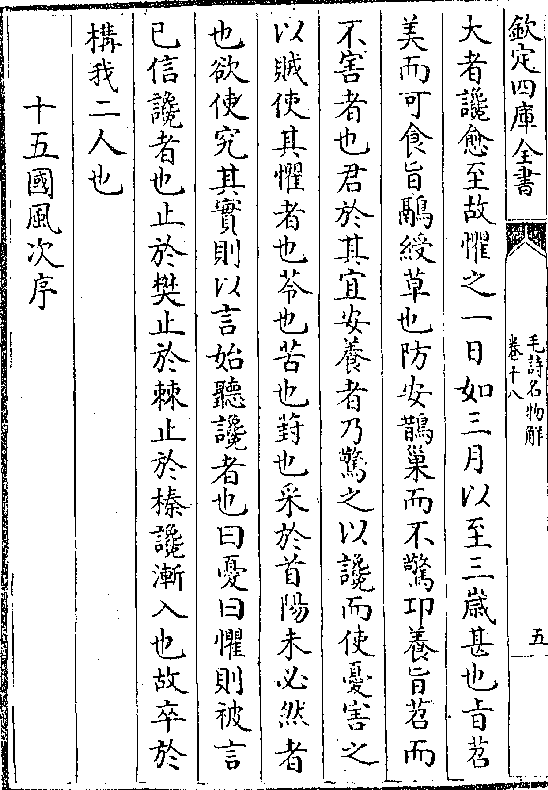 欽定四庫全書
毛詩名物解
卷十八
五
大者讒愈至故懼之一日如三月以至三歲甚也旨苕
美而可食旨鷊綬草也防安鵲巢而不驚邛養旨苕而
不害者也君於其宜安養者乃驚之以讒而使憂害之
以賊使其懼者也苓也苦也葑也采於首陽未必然者
也欲使究其實則以言始聽讒者也曰憂曰懼則被言
已信讒者也止於樊止於棘止於榛讒漸入也故卒於
構我二人也
十五國風次序